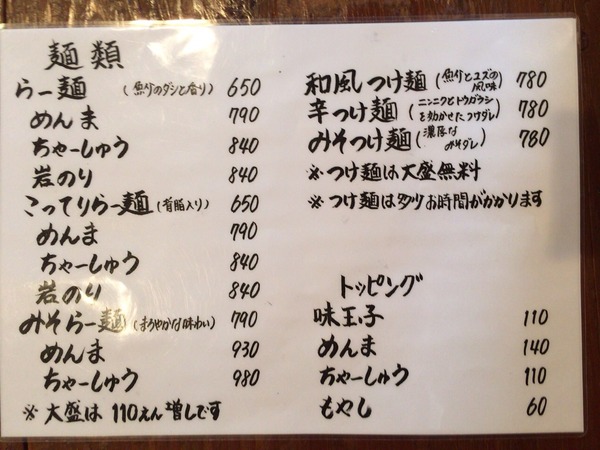 麺類
らー麺 (魚介のダシと香り) 650
めんま 790
ちゃーしゅう 840
岩のり 840
こってりらー麺 (背脂入り) 650
めんま 790
ちゃーしゅう 840
岩のり 840
みそらー麺 (まろやかな味わい) 790
めんま 930
ちゃーしゅう 980
※ 大盛は 110えん 増しです
和風つけ麺 (魚介とユズの風味) 780
辛つけ麺 (ニンニクとトウガラシを効かせたつけダレ) 780
みそつけ麺 (濃厚なみそダレ) 780
※つけ麺は大盛無料
※ つけ麺は多少お時間がかかります
トッピング
味玉子 110
めんま 140
ちゃーしゅう 110
もやし 60